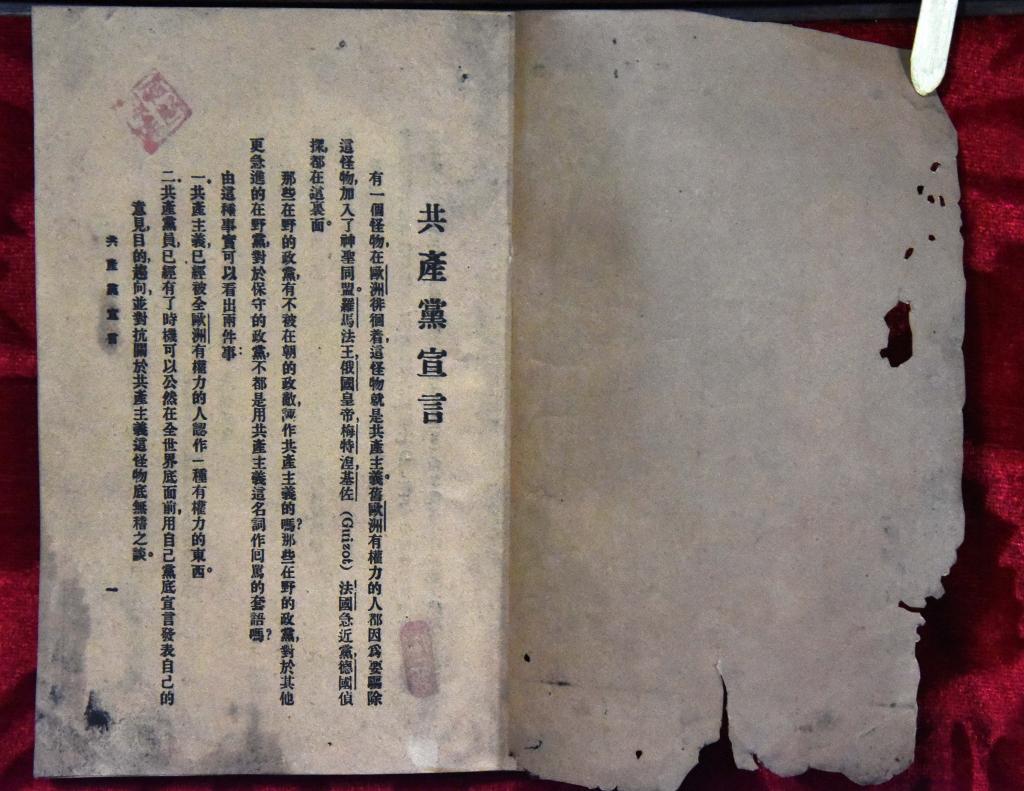 共產黨宣言
有一個怪物,在歐洲徘徊着,這怪物就是共產主義。舊歐洲有權力的人都因爲要驅除
這怪物,加入了神聖同盟。羅馬法王,俄國皇帝,梅特湼,基佐(Guizot),法國急近黨,德國偵
探,都在這裏面。
那些在野的政黨,有不被在朝的政敵,作共產主義的嗎?那些在野的政黨,對於其他
更急進的在野黨,對於保守的政黨,不都是用共產主義這名詞作回罵的套語嗎?
由這種事實可以看出兩件事:
一.共產主義,已經被全歐洲有權力的人認作一種有權力的東西。
二.共產黨員,已經有了時機可以公然在全世界底面前,用自己黨底宣言發表自己的
意見,目的,趨向,並對抗關於共產主義這怪物底無稽之談。
共產黨宣言
一